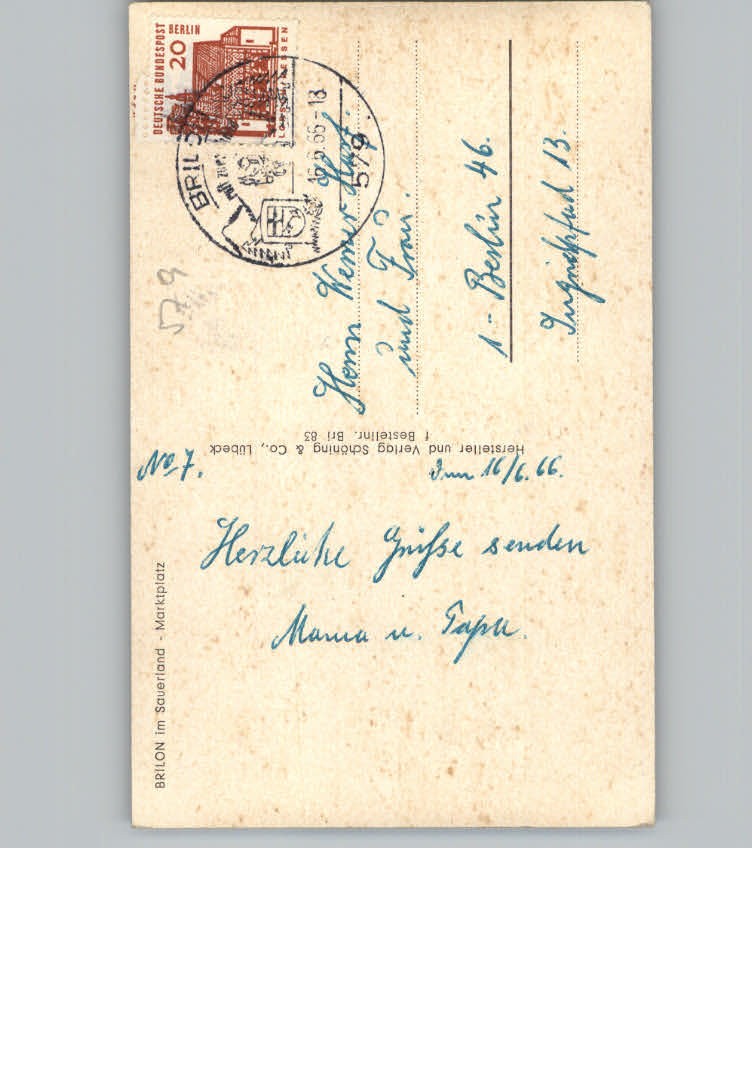 No 7.
Den 16/6. 66.
Herzliche Grüsse senden
Mama u. Papa.
BRILON im Sauerland - Marktplatz
Hersteller und Verlag Schöning & Co., Lübeck
f Bestellnr. Bri 83
DEUTSCHE BUNDESPOST
BERLIN
20
BRILON
16.6.66-18
579
579
Herrn Werner
und Frau.
1 - Berlin 46.
13.